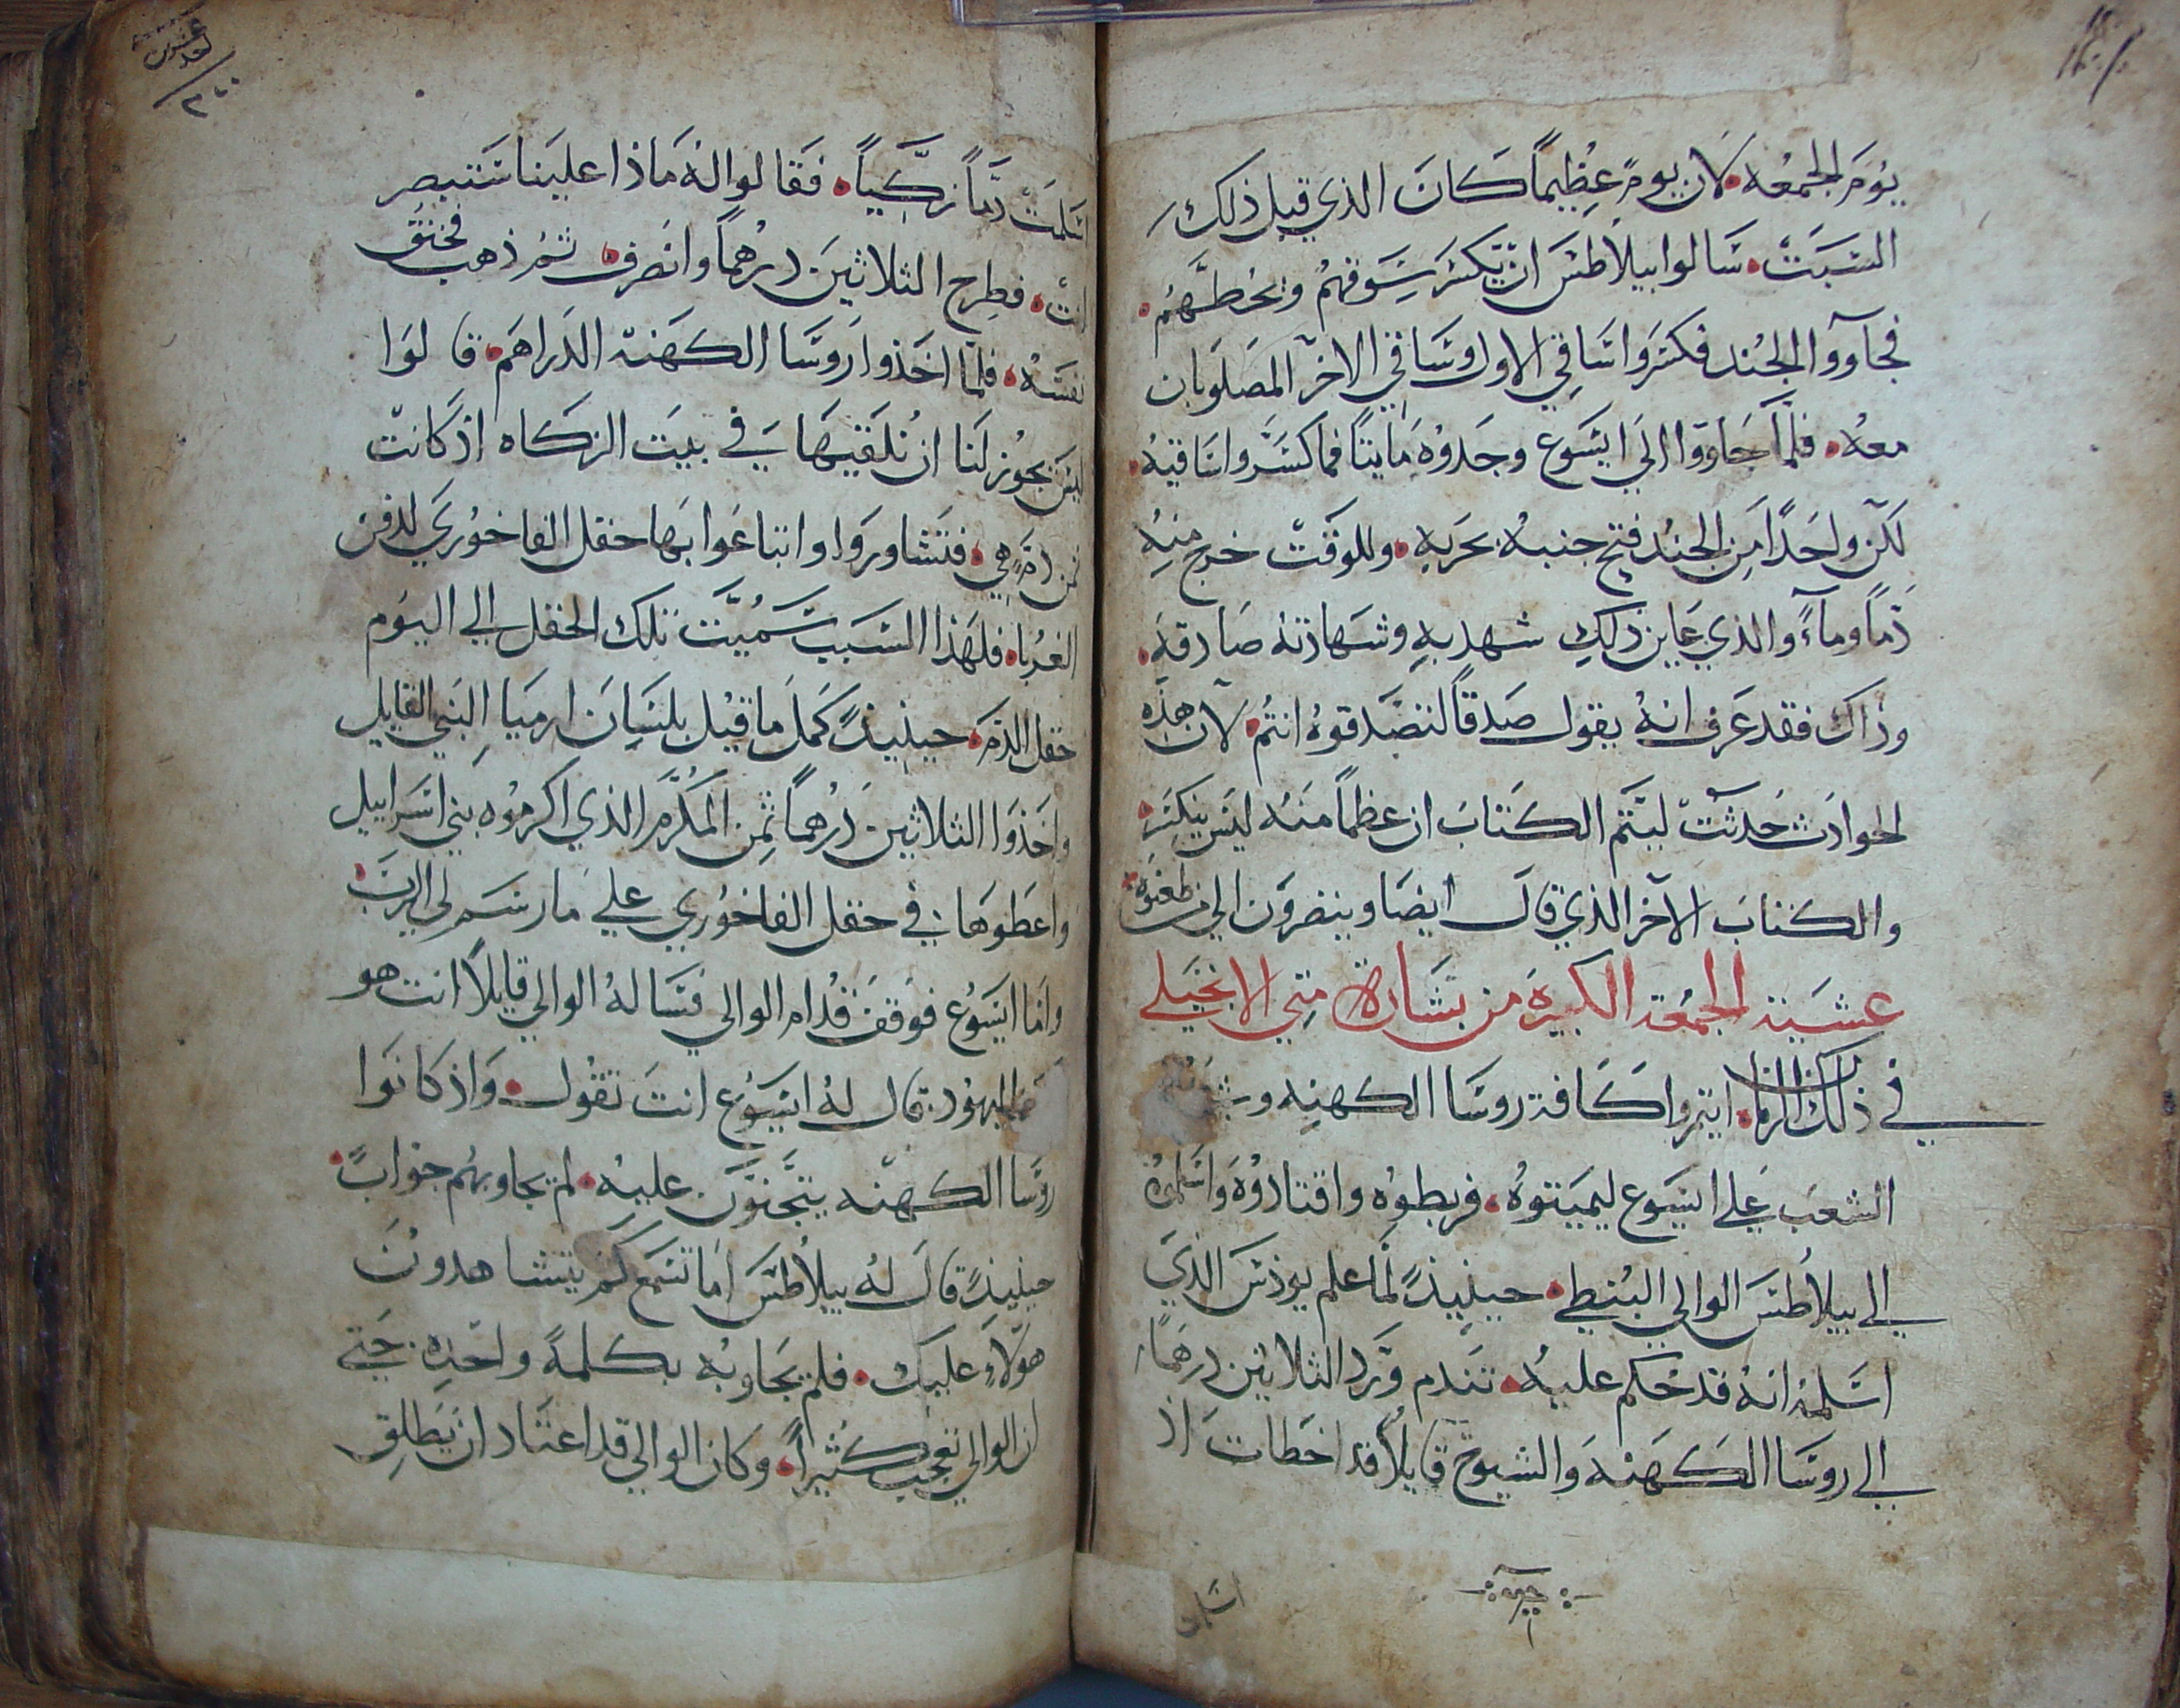 يوم الجمعه لان يوم عظيماً كان الذي قبل ذلك
السبت سالوا بيلاطس ان يكسر سوقهم ويحطهم
فجآووا الجند فكسروا ساقي الاول وساقي الاخر المصلوبان
معه فلما جاووا الي ايسوع وجدوه مايتاً فما كسروا ساقيه
لكن واحداً من الجند فتح جنبه بحربه وللوقت خرج منه
دماً ومآءً والذي عاين ذلك شهد به وشهادته صادقه
وذاك فقد عرف انه يقول صدقاً لتصدقوه انتم لان هذه
الحوادث حدثت ليتم الكتاب ان عظماً منه ليس ينكسر
والكتاب الاخر الذي قال ايضا وينضرون الي من طعنوه
عشية الجمعة الكبيره من بشارة متي الانجيلي
في ذلك الزمان ايتمروا كافة روسا الكهنه
الشعب علي ايسوع ليميتوه فربطوه واقتادوه واسلموه
الي بيلاطس الوالي البنطي حينيذً لما علم يوذس الذي
اسلمه انه قد حكم عليه تندم ورد الثلاثين درهماً
الي روسا الكهنه والشيوخ قايلاً قد اخطات اذ
اسلمت
اسلمت دماً زكياً فقالوا له ماذا علينا ستبصر
انت فطرح الثلاثين درهماً وانصرف ثم ذهب فخنق
نفسه فلما اخذوا روسا الكهنة الدراهم قالوا
ليس يجوز لنا ان نلقيها في بيت الزكاه اذ كانت
ثمن دم هي فتشاوروا وابتاعوا بها حقل الفاخوري لدفن
الغربا فلهذا السبب سميت تلك الحقل الي اليوم
حقل الدم حينيذً كمل ما قيل بلسان ارميا النبي القايل
واخذوا الثلاثين درهماً ثمن المكرم الذي اكرموه بني اسراييل
واعطوها في حقل الفاخوري علي ما رسم لي الرب
واما ايسوع فوقف قدام الوالي فساله الوالي قايلاً انت هو
اليهود قال له ايسوع انت تقول واذ كانوا
روسا الكهنه يتجنون عليه لم يجاوبهم جواباً
حينيذً قال له بيلاطس اما تسمع كم يتشاهدون
هولاء عليك فلم يجاوبه بكلمةً واحده حتي
ان الوالي تعجب كثيراً وكان الوالي قد اعتاد ان يطلق